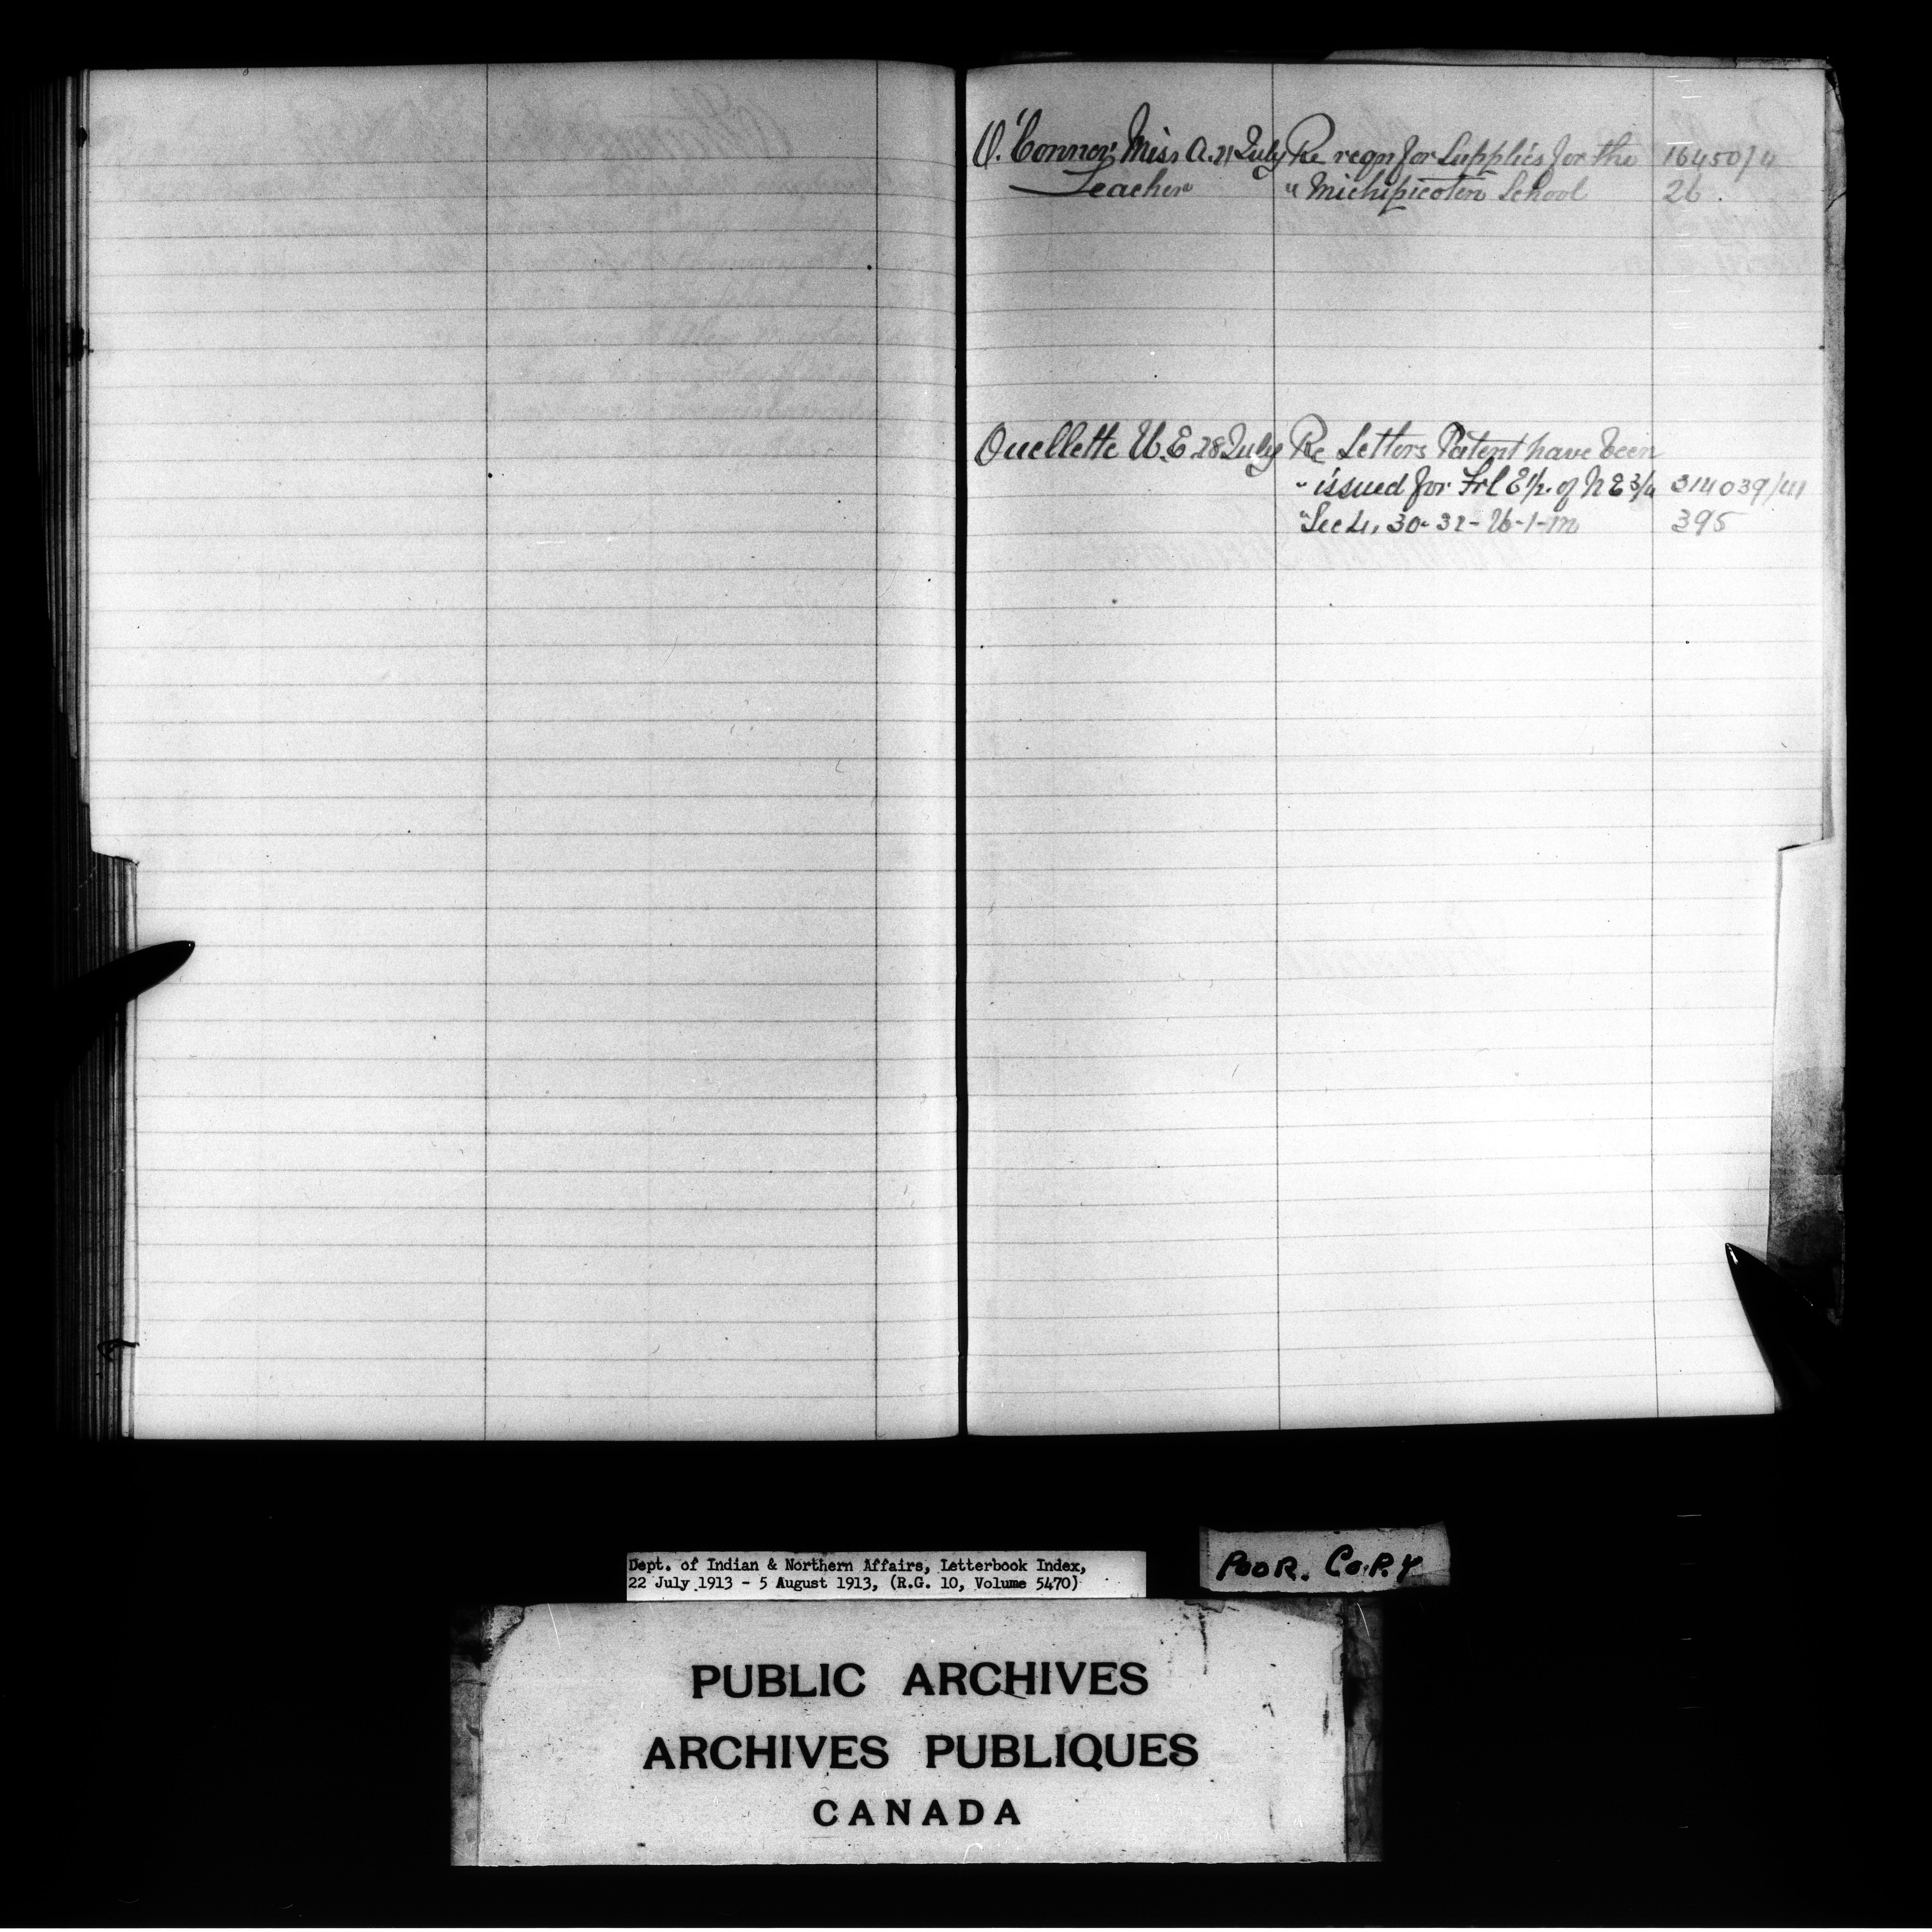 O'Connor, Miss A. 21 July Re reqn for Supplies for the 164507/4
Teacher " Michipicoten School 26
Ouellette U. E. 28 July Re Letters Patent have been
" issued for Frl E 1/2. of N E 3/4 314039/41
" Sec 4, 30-32-W-1-M 395
Dept. of Indian & Northern Affairs, Letterbook Index,
22 July 1913 - 5 August 1913, (R.G. 10, Volume 5470)
POOR. COPY
PUBLIC ARCHIVES
ARCHIVES PUBLIQUES
CANADA